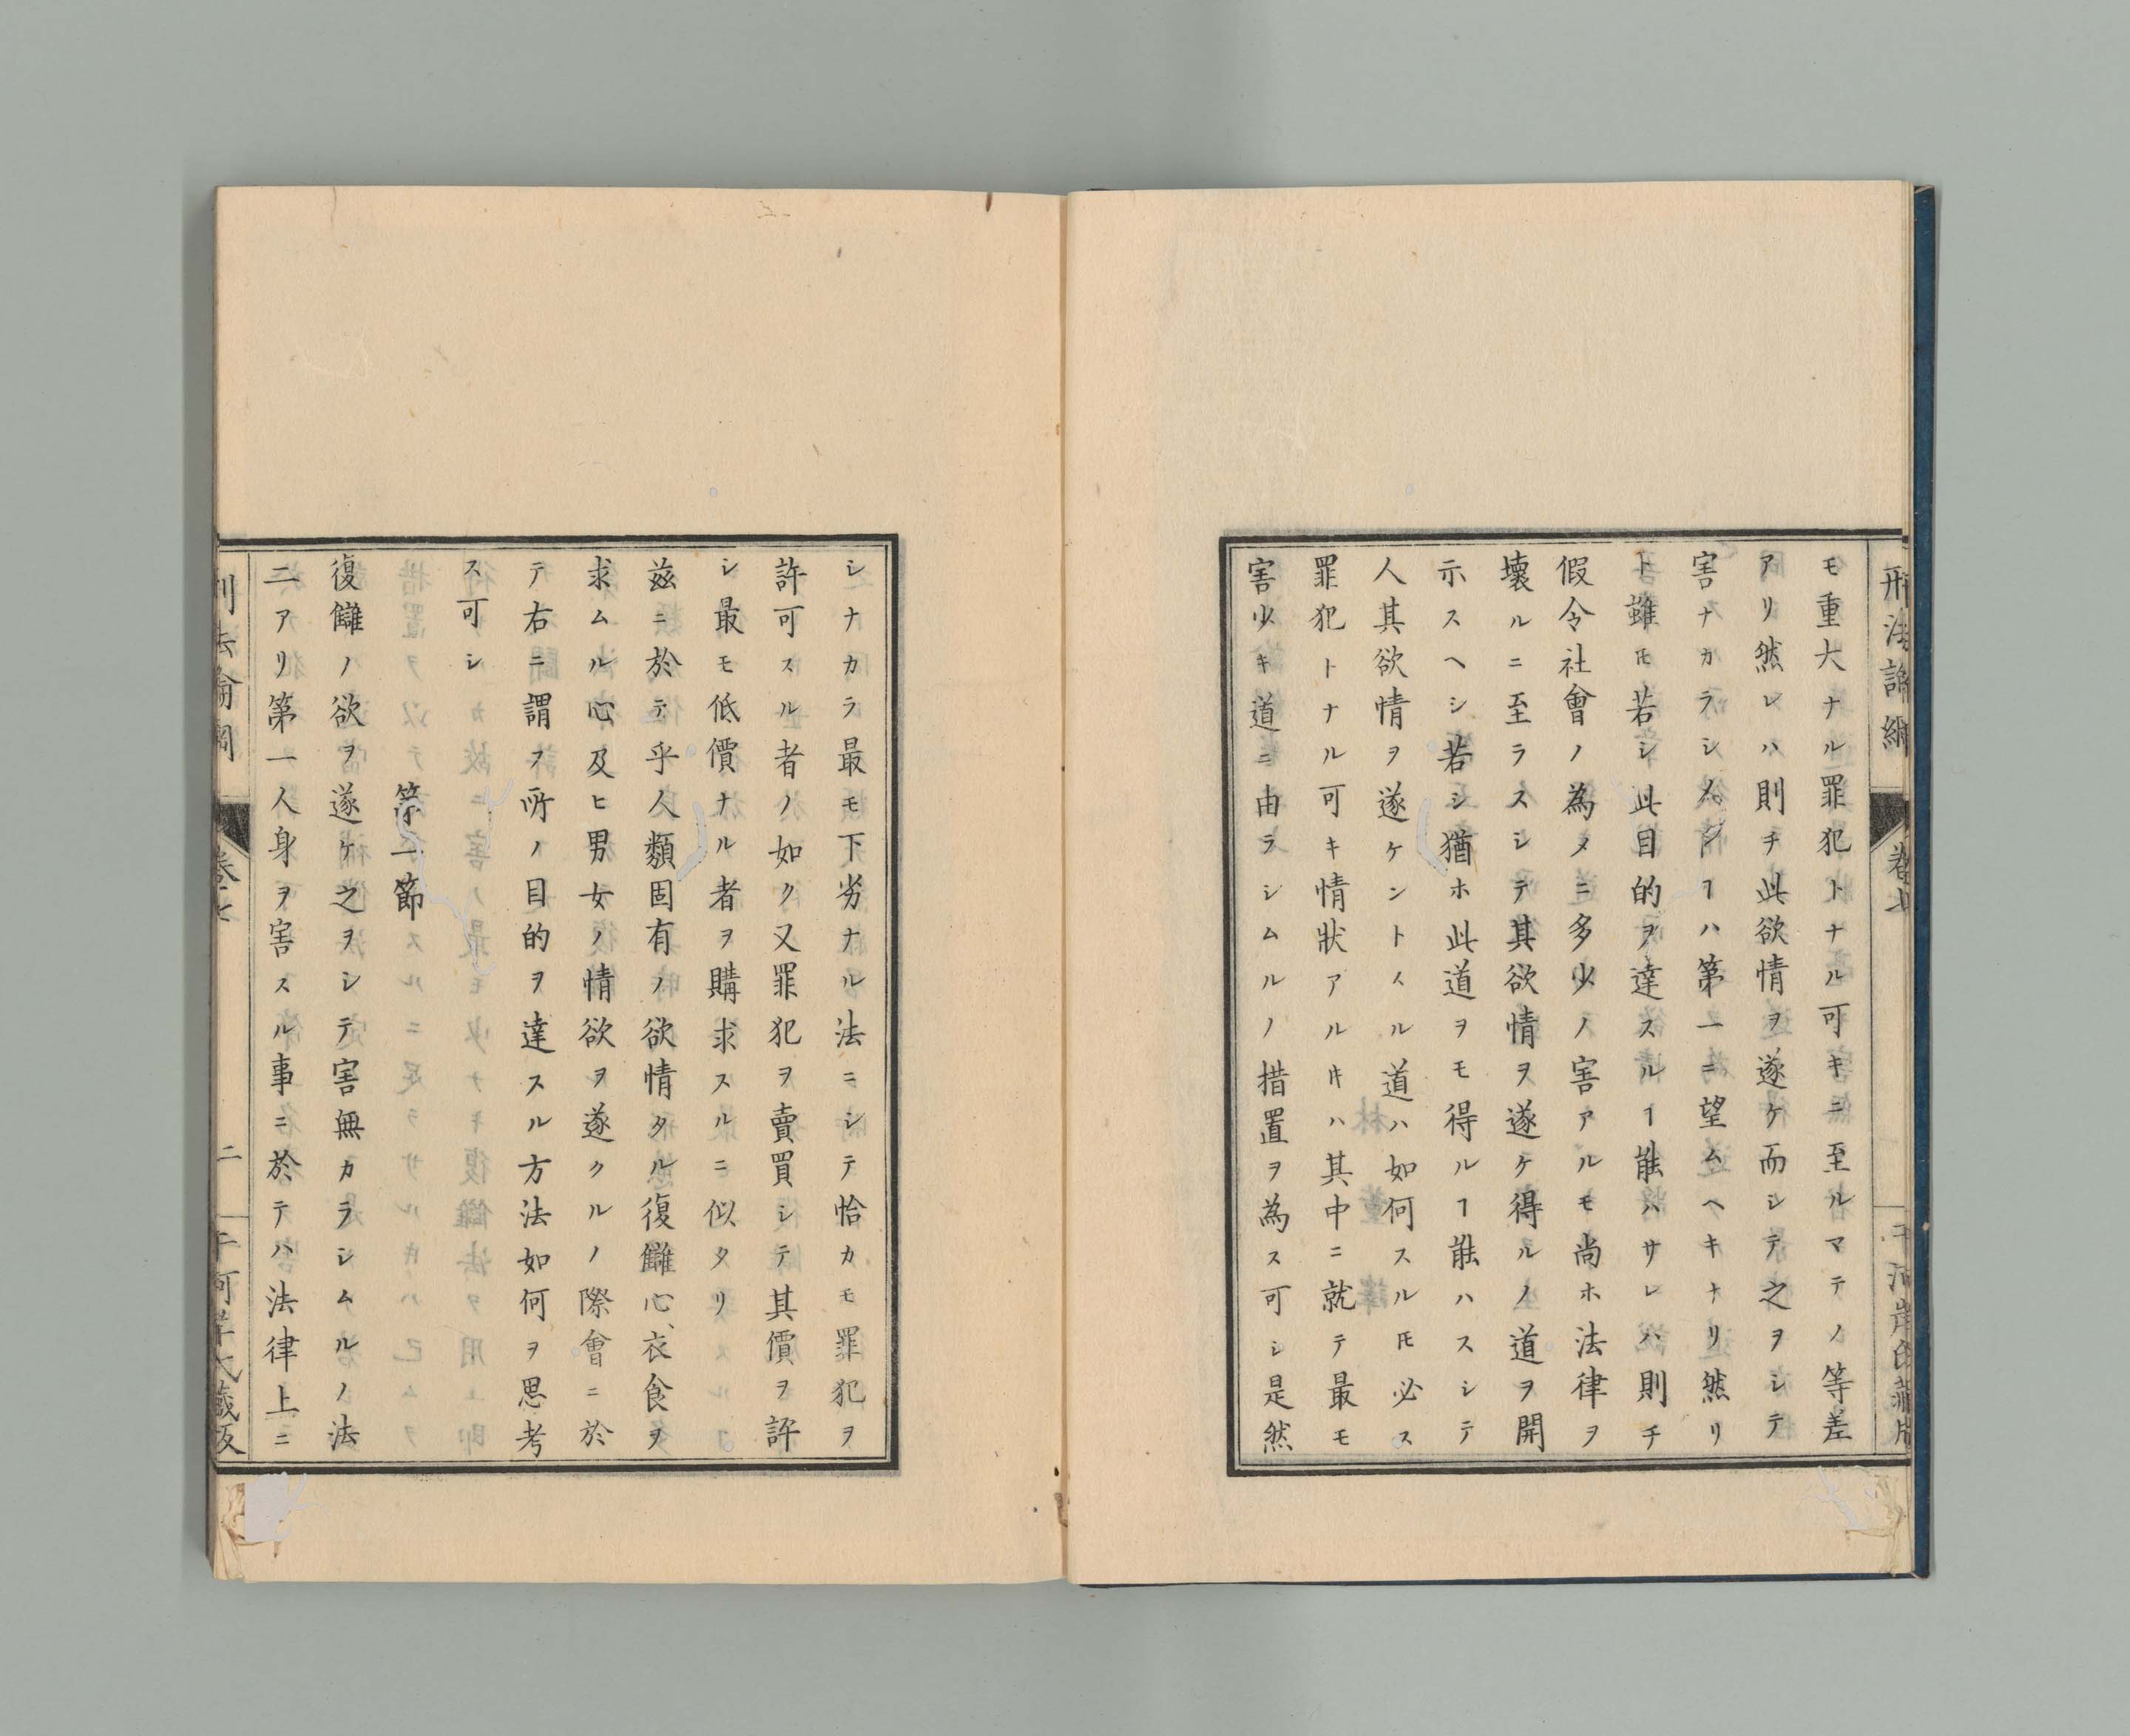 刑法論綱
卷七
モ重大ナル罪犯トナル可キニ至ルマテノ等差
アリ然レハ則チ此欲情ヲ遂ケ而シテ之ヲシテ
害ナカラシメンヿハ第一ニ望ムヘキナリ然リ
ト雖モ若シ此目的ヲ達スルヿ能ハサレハ則チ
假令社會ノ為メニ多少ノ害アルモ尚ホ法律ヲ
壞ルニ至ラスシテ其欲情ヲ遂ケ得ルノ道ヲ開
示スヘシ若シ猶ホ此道ヲモ得ルヿ能ハスシテ
人其欲情ヲ遂ケントスル道ハ如何スルモ必ス
罪犯トナル可キ情狀アルトキハ其中ニ就テ最モ
害少キ道ニ由ラシムルノ措置ヲ為ス可シ是然
シナカラ最モ下劣ナル法ニシテ恰カモ罪犯ヲ
許可スル者ノ如ク又罪犯ヲ賣買シテ其價ヲ許
シ最モ低價ナル者ヲ購求スルニ似タリ
茲ニ於テ乎人類固有ノ欲情タル復讎心、衣食ヲ
求ムル心及ヒ男女ノ情欲ヲ遂クルノ際會ニ於
テ右ニ謂フ所ノ目的ヲ達スル方法如何ヲ思考
ス可シ
第一節
復讎ノ欲ヲ遂ケ之ヲシテ害無カラシムルノ法
二アリ第一人身ヲ害スル事ニ於テハ法律上ニ
卷七
二